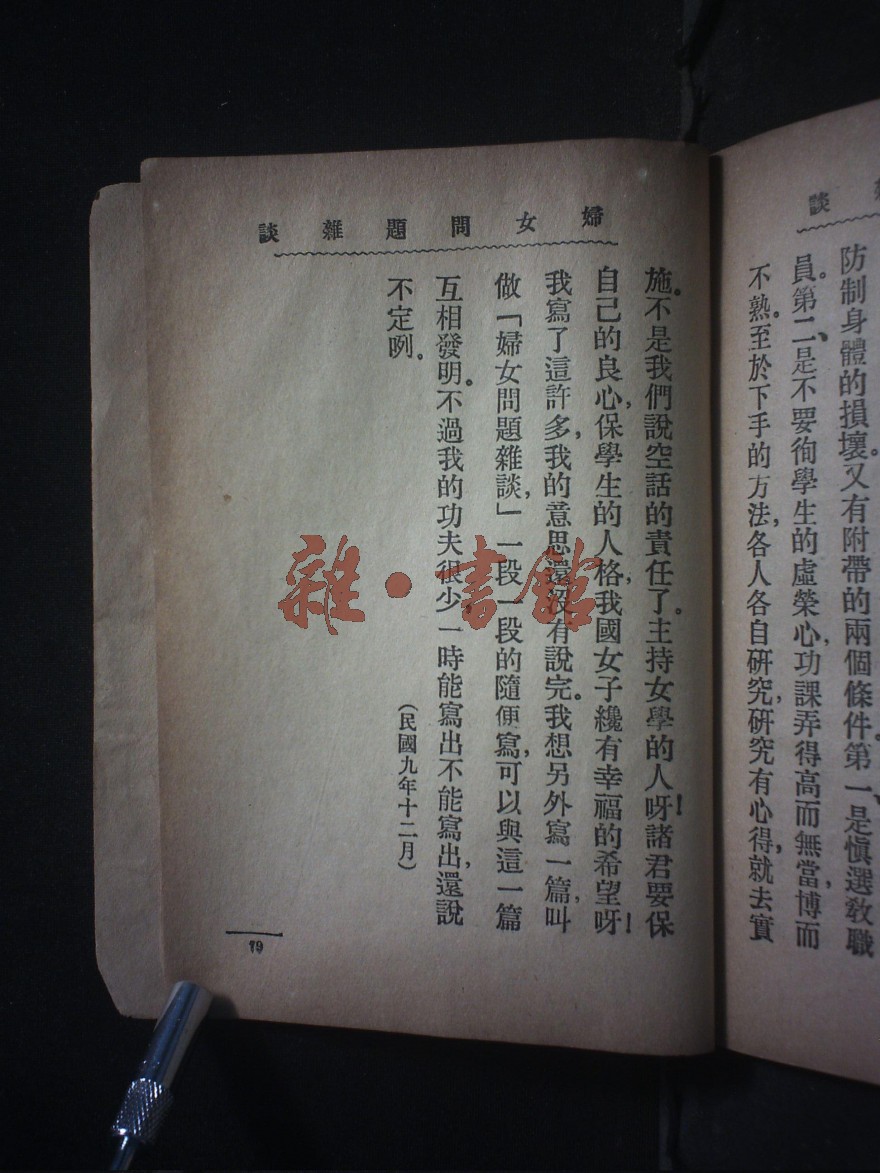 談
防制身體的損壞。又有附帶的兩個條件。第一、是愼選敎職
員。第二、是不要徇學生的虛榮心,功課弄得高而無當,博而
不熟。至於下手的方法,各人各自研究,研究有心得,就去實
婦女問題雜談
施。不是我們說空話的責任了。主持女學的人呀!諸君要保
自己的良心,保學生的人格,我國女子纔有幸福的希望呀!
我寫了這許多,我的意思還沒有說完。我想另外寫一篇,叫
做「婦女問題雜談,」一段一段的隨便寫,可以與這一篇
互相發明。不過我的功夫很少,一時能寫出不能寫出,還說
不定咧。
(民國九年十二月)
79
雜·書館